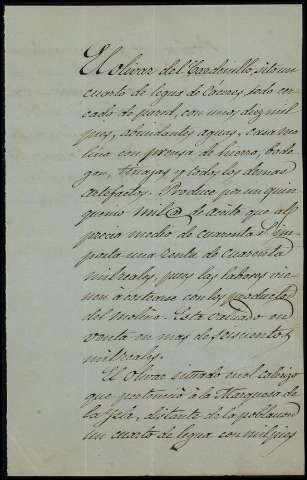 El olivar del Cardenillo, sito un
cuarto de legua de Cáceres, todo cer
cado de pared, con unos diez mil
pies, abundantes aguas, casa mo
lino con prensa de hierro, bode
gon, tinajas y todos los demas
artefactos. Produce por un quin
quenio mil @ de aceite que al
precio medio de cuarenta rs. im
porta una renta de cuarenta
mil reales, pues las labores vie
nen á costearse con los productos
del molino. Está valuado en
venta en mas de seiscientos
mil reales.
El Olivar situado en el calerizo
que perteneció á la Marquesa de
la Ysla, distante de la poblacion
un cuarto de legua con mil pies